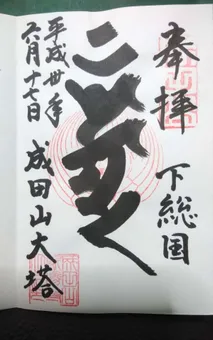 奉拝
下総国
成田山大塔
平成卅年
六月十七日